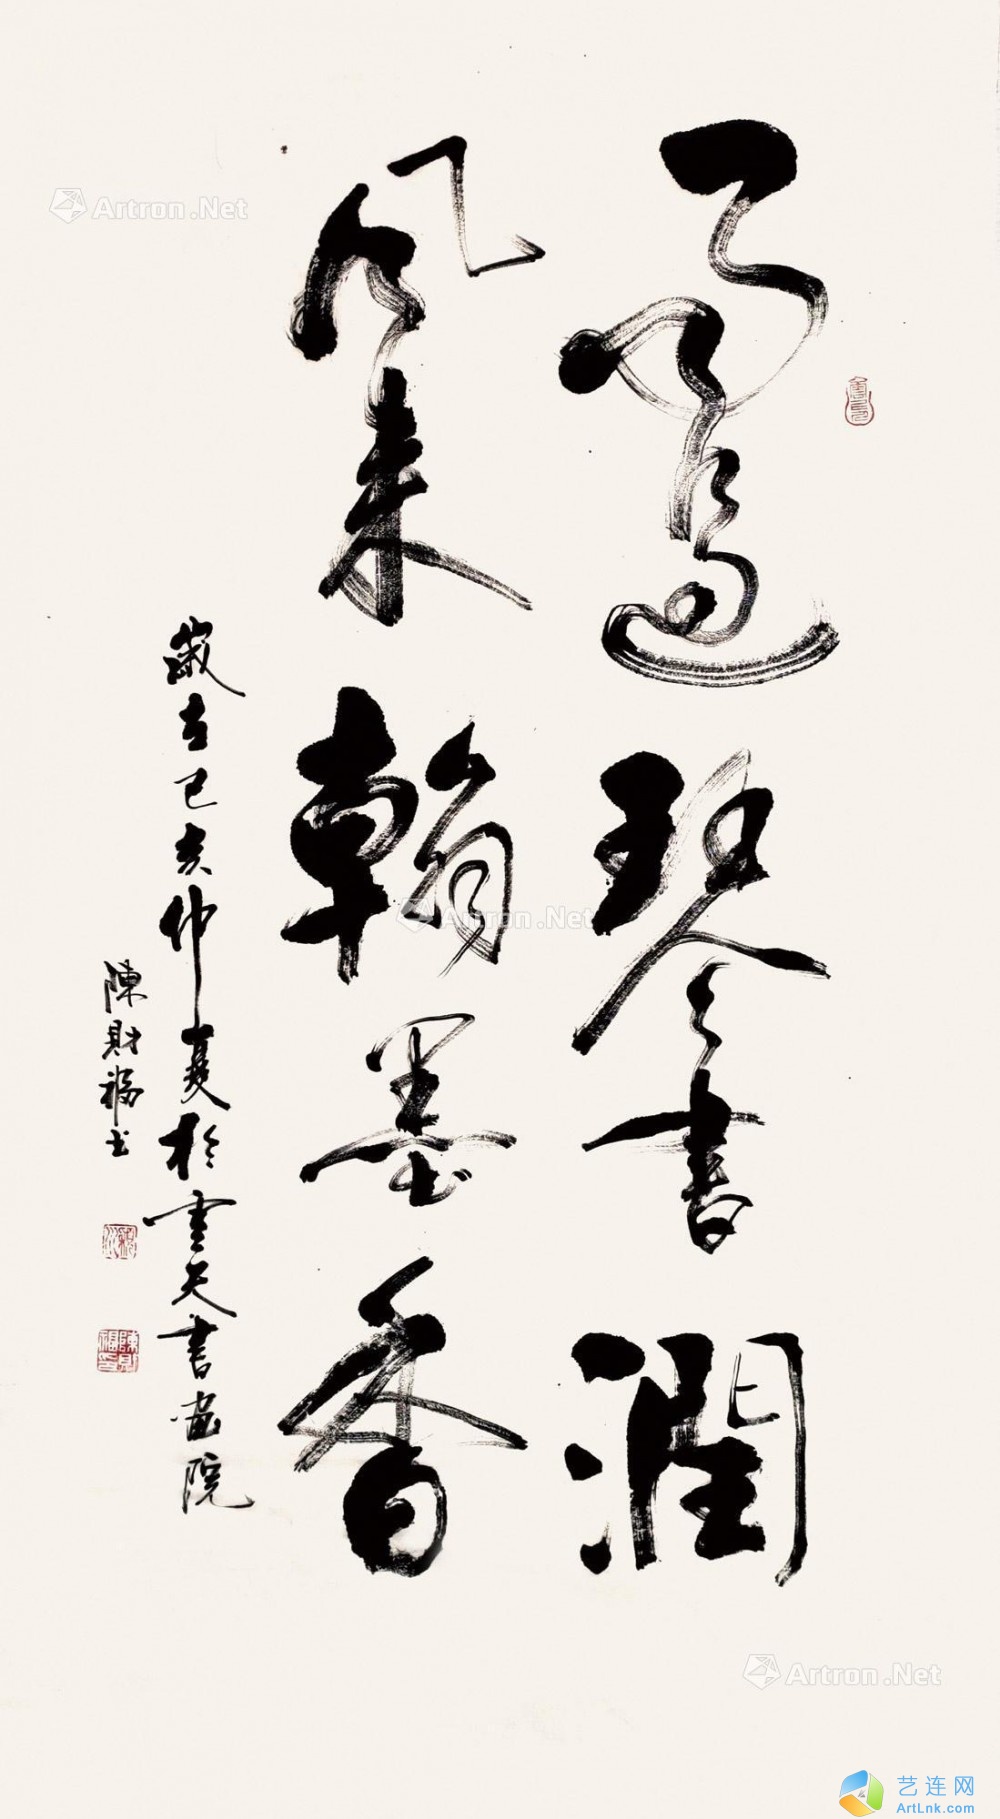 雨过琴书润
风来翰墨香
岁在己亥仲夏於云天书画院
陳财福书
陳财福印
Artron.Net
Artron.Net
Artron.Net
艺连网
ArtLnk.com